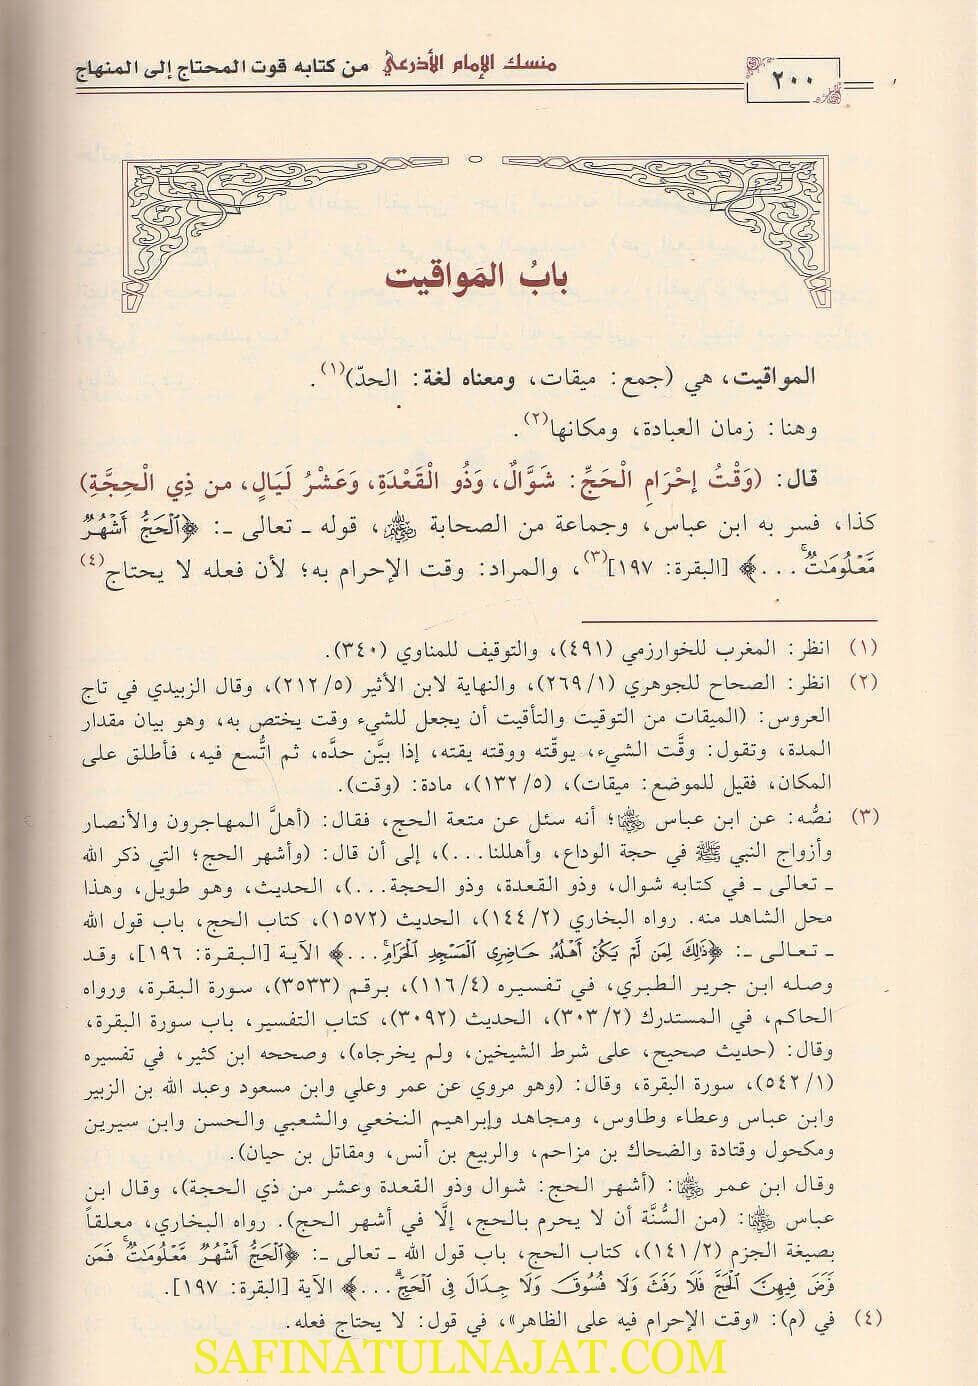 ٢٠٠
منسك الإمام الأذرعي من كتابه قوت المحتاج إلى المنهاج
بابُ المَواقيت
المواقيت، هي (جمع: ميقات، ومعناه لغة: الحدّ)(١).
وهنا: زمان العبادة، ومكانها(٢).
قال: (وَقْتُ إحْرَامِ الْحَجِّ: شَوَّالٌ، وَذُو الْقَعْدَةِ، وَعَشْرُ لَيَالٍ، من ذِي الْحِجَّةِ)
كذا، فسر به ابن عباس، وجماعة من الصحابة ﷺ، قوله ـ تعالى ـ: ﴿ٱلْحَجُّ أَشْهُرٌ
مَّعْلُومَـٰتٌ ...﴾ [البقرة: ١٩٧](٣)، والمراد: وقت الإحرام به؛ لأن فعله لا يحتاج(٤)
(١) انظر: المغرب للخوارزمي (٤٩١)، والتوقيف للمناوي (٣٤٠).
(٢) انظر: الصحاح للجوهري (٢٦٩/١)، والنهاية لابن الأثير (٢١٢/٥)، وقال الزبيدي في تاج
العروس: (الميقات من التوقيت والتأقيت أن يجعل للشيء وقت يختص به، وهو بيان مقدار
المدة، وتقول: وقَّت الشيء، يوقّته ووقته يقته، إذا بيَّن حدَّه، ثم اتُّسع فيه، فأطلق على
المكان، فقيل للموضع: ميقات)، (١٣٢/٥)، مادة: (وقت).
(٣) نصُّه: عن ابن عباس ؛ أنه سئل عن متعة الحج، فقال: (أهلَّ المهاجرون والأنصار
وأزواج النبي ﷺ في حجة الوداع، وأهللنا...)، إلى أن قال: (وأشهر الحج؛ التي ذكر الله
ـ تعالى ـ في كتابه شوال، وذو القعدة، وذو الحجة...)، الحديث، وهو طويل، وهذا
محل الشاهد منه. رواه البخاري (١٤٤/٢)، الحديث (١٥٧٢)، كتاب الحج، باب قول الله
ـ تعالى ـ: ﴿ذَٰلِكَ لِمَن لَّمْ يَكُنْ أَهْلُهُۥ حَاضِرِى ٱلْمَسْجِدِ ٱلْحَرَامِ ...﴾ الآية [البقرة: ١٩٦]، وقد
وصله ابن جرير الطبري، في تفسيره (١١٦/٤)، برقم (٣٥٣٣)، سورة البقرة، ورواه
الحاكم، في المستدرك (٣٠٣/٢)، الحديث (٣٠٩٢)، كتاب التفسير، باب سورة البقرة،
وقال: (حديث صحيح، على شرط الشيخين، ولم يخرجاه)، وصححه ابن كثير، في تفسيره
(٥٤٢/١)، سورة البقرة، وقال: (وهو مروي عن عمر وعلي وابن مسعود وعبد الله بن الزبير
وابن عباس وعطاء وطاوس، ومجاهد وإبراهيم النخعي والشعبي والحسن وابن سيرين
ومكحول وقتادة والضحاك بن مزاحم، والربيع بن أنس، ومقاتل بن حيان).
وقال ابن عمر : (أشهر الحج: شوال وذو القعدة وعشر من ذي الحجة)، وقال ابن
عباس : (من السُّنَّة أن لا يحرم بالحج، إلَّا في أشهر الحج). رواه البخاري، معلقاً
بصيغة الجزم (١٤١/٢)، كتاب الحج، باب قول الله ـ تعالى ـ: ﴿ٱلْحَجُّ أَشْهُرٌ مَّعْلُومَـٰتٌ فَمَن
فَرَضَ فِيهِنَّ ٱلْحَجَّ فَلَا رَفَثَ وَلَا فُسُوقَ وَلَا جِدَالَ فِى ٱلْحَجِّ ...﴾ الآية [البقرة: ١٩٧].
(٤) في (م): «وقت الإحرام فيه على الظاهر»، في قول: لا يحتاج فعله.
SAFINATULNAJAT.COM